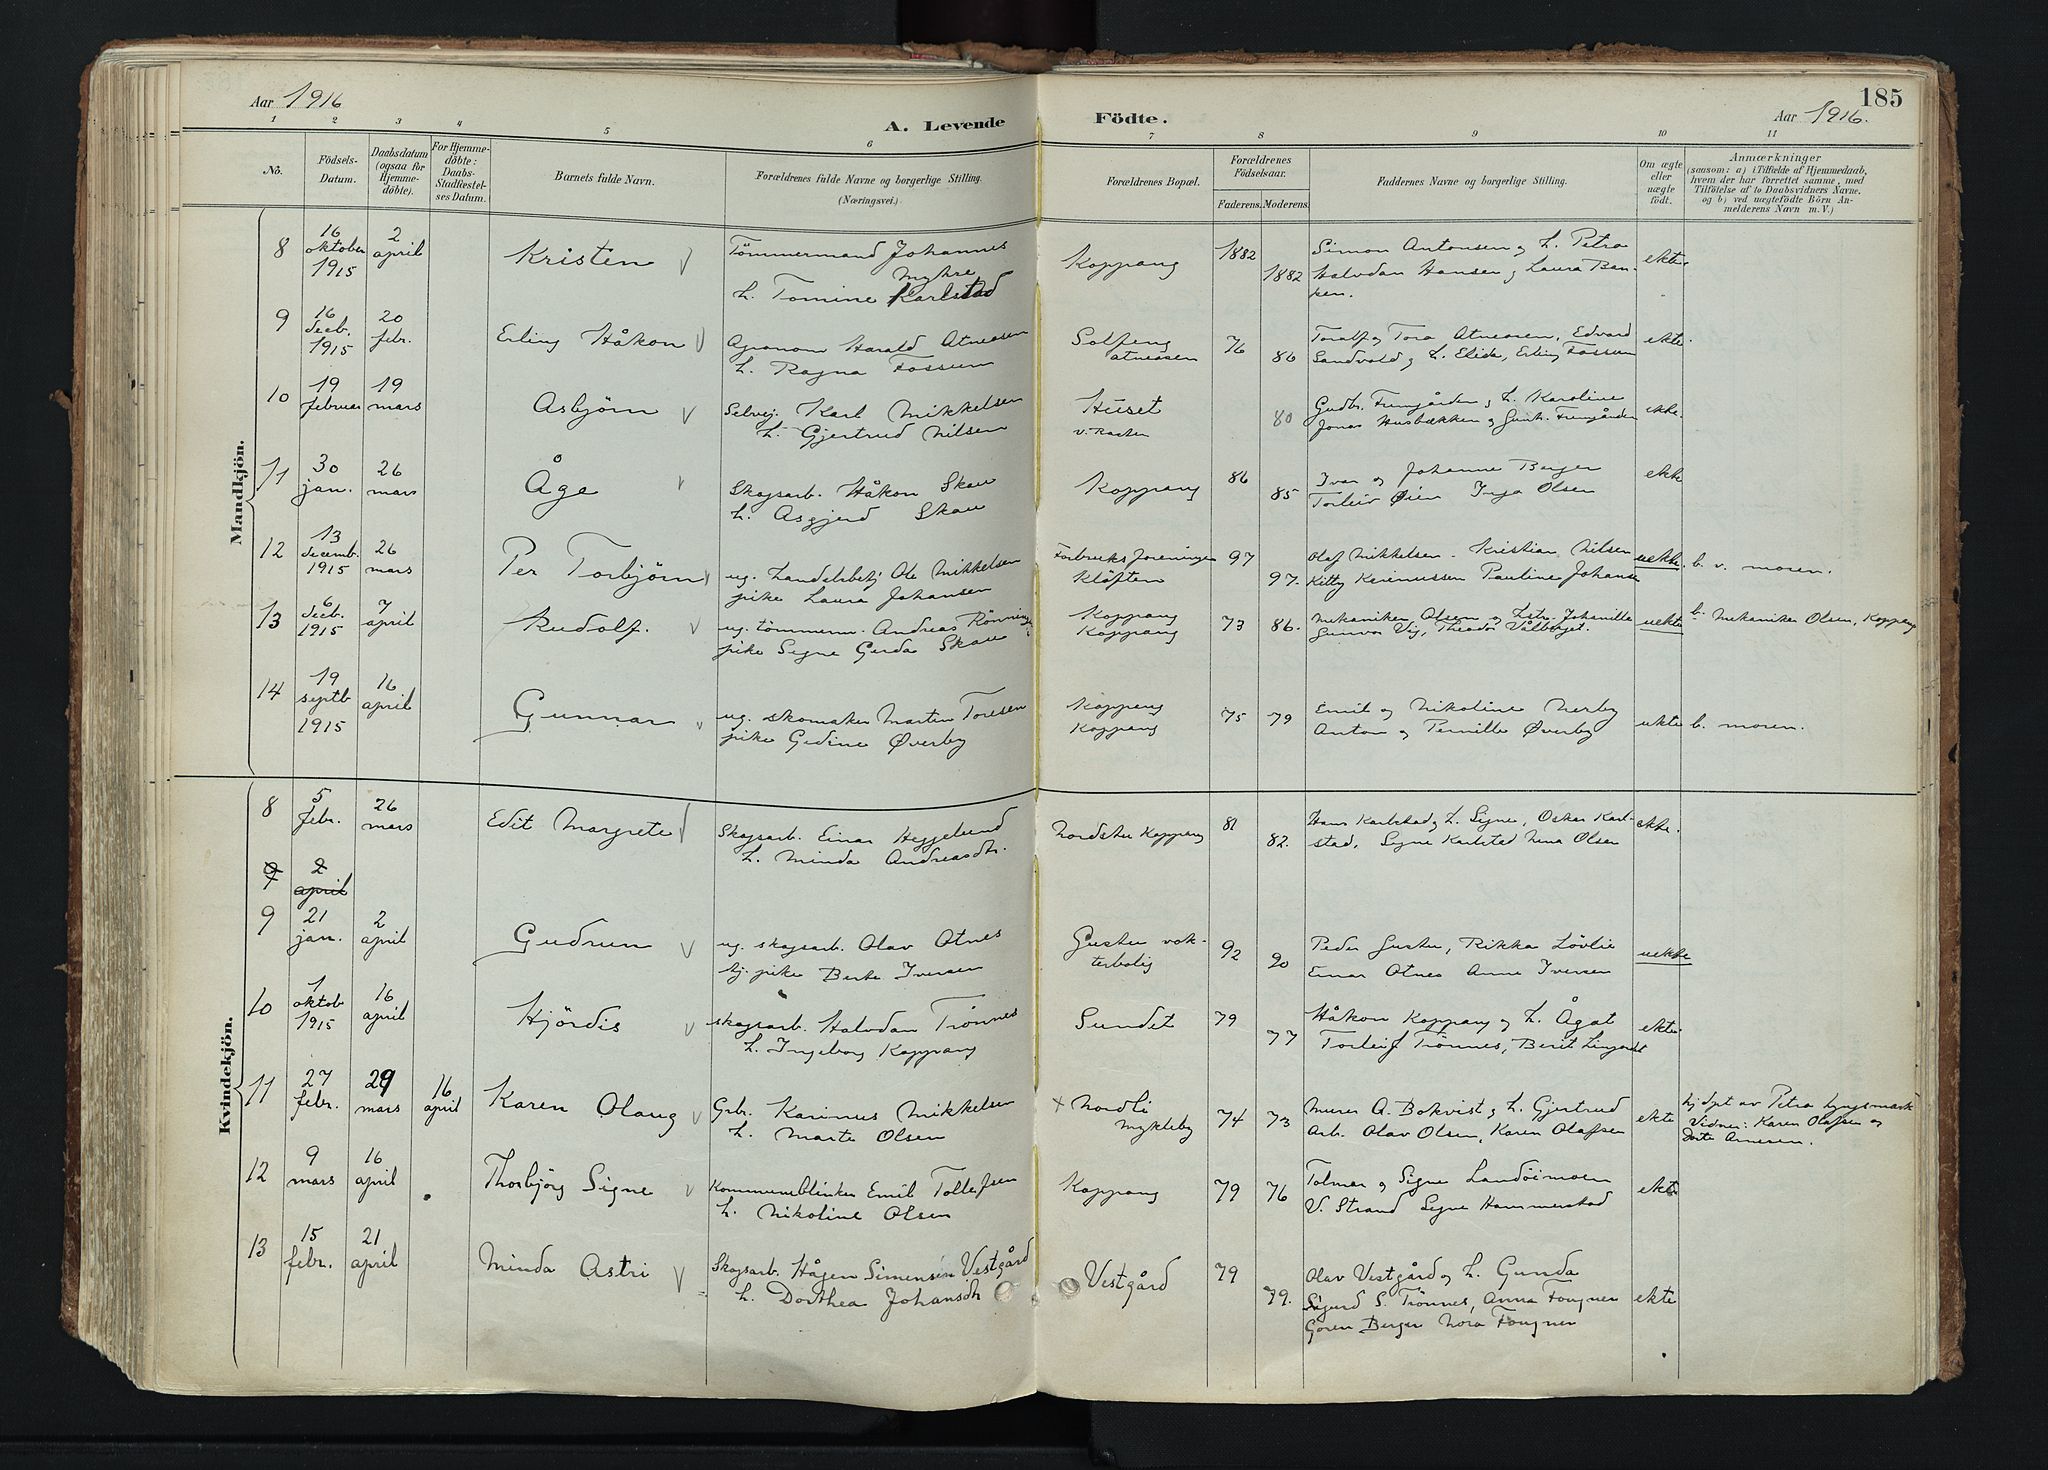 Aar 1916
A. Levende Födte.
185
Aar 1916.
1 2 3 4 5 6 7 8 9 10 11
No.
Födsels-Datum.
Daabsdatum (ogsaa for Hjemme-döbte).
For Hjemme-döbte: Daabs-Stadfæstel-ses Datum.
Barnets fulde Navn.
Forældrenes fulde Navne og borgerlige Stilling. (Næringsvei.)
Forældrenes Bopæl.
Forældrenes Födselsaar.
Faderens. Moderens.
Faddernes Navne og borgerlige Stilling.
Om ægte eller uægte födt.
Anmærkninger
(saasom: a) i Tilfælde af Hjemmedaab, hvem der har forrettet samme, med Tilföielse af to Daabsvidners Navne, og b) ved uægtefödte Börn An-melderens Navn m. V.)
Mandkjön.
8 16 oktober 1915 2 april Kristen Tömmermand Johannes Myhre
h. Tomine Karlstad
Koppang 1882 1882
Simon Antonsen og h. Petra
Halvdan Hansen og Laura Ban-
ken.
ekte.
9 16 decb. 1915 20 febr. Erling Håkon Agronom Harald Atneosen
h. Ragna Fossum
Solfeng atneosen 76 86
Toralf og Tora Atneosen, Edvard
Sandvold og h. Elida, Erling Fossum
ekte.
10 19 februar 19 mars Asbjörn Selvej. Karl Mikkelsen
h. Gjertrud Nilsen
Huset v. Rasten 80
Gudbr. Fremgården og h. Karoline
Jonas Husbækken og Gunh. Fremgården
ekte.
11 30 jan. 26 mars Åge Skogsarb. Håkon Skau
h. Asgjerd Skau
Koppang 86 85
Ivar og Johanne Berger
Torleiv Øien Inga Olsen
ekte
12 13 decemb. 1915 26 mars Per Torbjörn ug. handelsbetj Ole Mikkelsen
pike Laura Johansen
Forbruksforeningen
Klöften 97 97.
Olaf Mikkelsen. Kristian Nilsen
Kitty Pauline Johansen
uekte. b. v. moren.
13 6 decb. 1915 7 april Rudolf. ug. tömmerm. Andreas Rönningen
pike Signe Gerda Skau
Koppang
Koppang 73 86.
Mekaniker Olsen og Johanille
Gunvor Vig, Theodor Vålberget.
uekte b. Mekaniker Olsen, Koppang
14 19 septb 1915 16 april Gunnar ug. skomaker Martin Toresen
pike Gedine Øverby
Koppang
Koppang 75 79
Emil og Nikoline Nerby
Anton og Pernille Øverby
uekte b. moren.
Kvindekjön.
8 5 febr. 26 mars Edit Margrete Skogsarb. Einar Heggelund
h. Minda Andreasdtr.
Nordstu Koppang 81 82.
Hans Karlstad og h. Signe, Oskar Karl-
stad, Signe Karlstad Olsen
ekte.
9 2 april
9 21 jan. 2 april Gudrun ug. skogsarb. Olav Atnes
tj. pike Berte Iversen
Gustu vok-
terbolig 92 90
Peder Gustu, Rikka Lövlie
Einar Atnes Anne Iversen
uekte
10 1 oktob 1915 16 april Hjördis skogsarb. Halvdan Trönnes
h. Ingeborg Koppang
Sundet 79 77
Håkon Koppang og h. Ågat
Torleif Trönnes, Berit
ekte.
11 27 febr. 29 mars 16 april Karen Olaug Grbr. Karinus Mikkelsen
h. Marte Olsen
+ Nordli
Mykleby 74 73
Murer A. Bokvist og h. Gjertrud
Arb. Olav Olsen, Karen Olafsen
ekte hj.döpt av Petra Lyngsmark
Vidner: Karen Olafsen og
Arnesen.
12 9 mars 16 april Thorbjörg Signe Kommuneblinker Emil Tollefsen
h. Nikoline Olsen
Koppang 79 76
Tolmar og Signe Landöimoen
V. Strand Signe Hammerstad
ekte
13 15 febr. 21 april Minda Astri Skogsarb. Hågen Simensen Vestgård
h. Dorthea Johansdtr
Vestgård 79 79.
Olav Vestgård og h. Gunda
Sigurd S. Trönnes, Anna Fougner
Gören Berger Nora Fougner
ekte